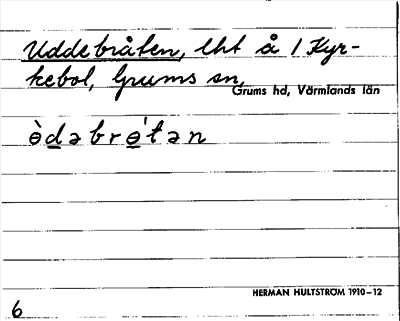 Uddebråten, lht å 1 Kyr-
kebol, Grums sn,
Grums hd, Värmlands län
ɵ̀d̲əbrɵ̲́tən
HERMAN HULTSTRÖM 1910-12
6